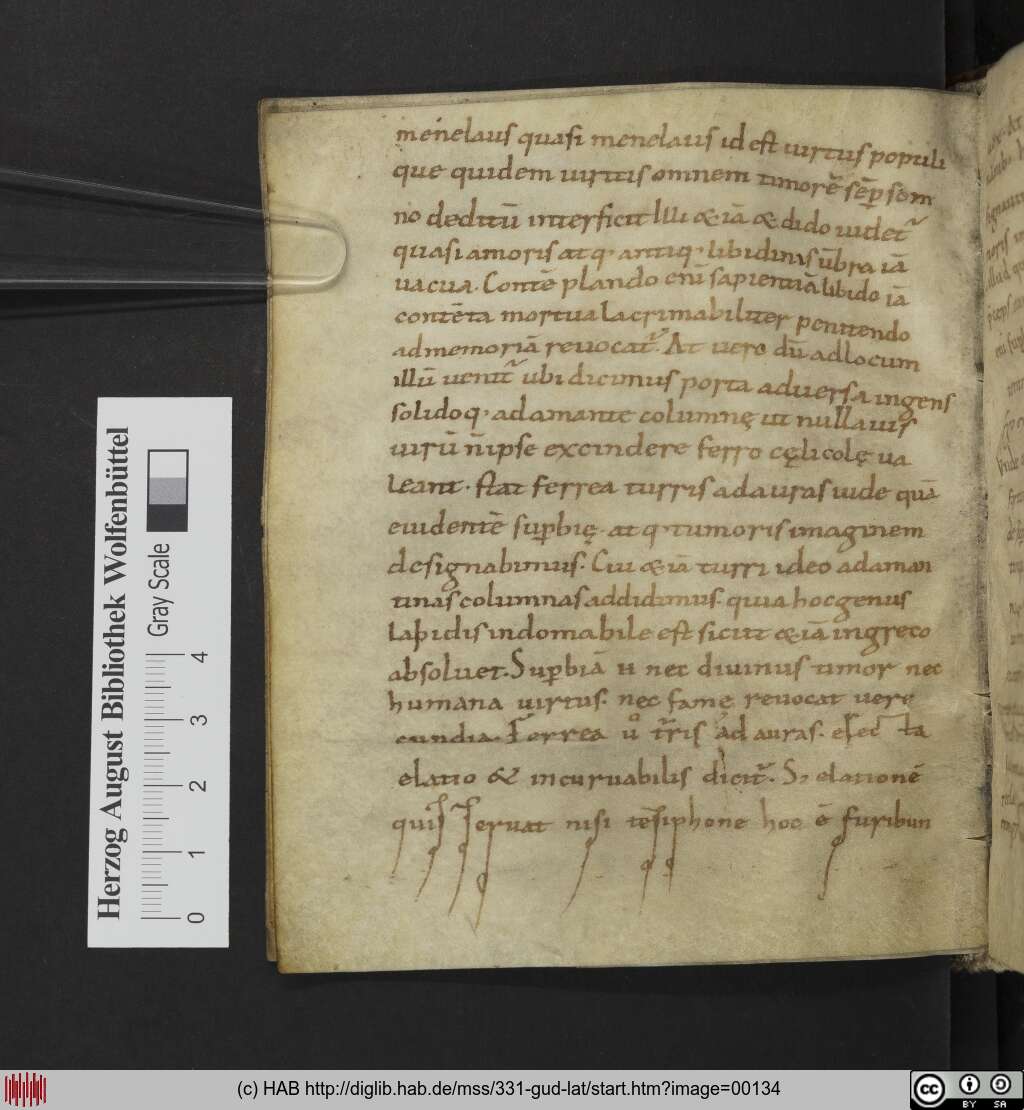 menelaus quasi menelaus id est uirtus populi
que quidem uirtus omnem timorē sēp som
no deditū interficit Illi &iā & dido uidet᷑
quasi amoris atq· antiq· libidinis ūbra iā
uacua. Contē plando eni sapientiā libido iā
contēta mortua lacrimabiliter penitendo
ad memoriā reuocat᷑. At uero dū ad locum
illū uenit᷑ ubi dicimus porta aduersa ingens
solidoq· adamante columnę ut nulla uis
uirū n̄ ipse excindere ferro cęlicolę ua
leant. stat ferrea turris ad auras uide quā
euidentē supbię atq· tumoris imaginem
designabimus. Cui &iā turri ideo adaman
tinas columnas addidimus. quia hoc genus
lapidis indomabile est sicut &iā in greco
absoluet. Supbiā n nec diuinus timor nec
humana uirtus. nec fame reuocat uere
cundia. Ferrea u᷑ t᷑ris ad auras. e
elatio & incuruabilis dicit᷑. S; elationē
quis seruat nisi tesiphone hoc ē furibun
Herzog August Bibliothek Wolfenbüttel
Gray Scale
0 1 2 3 4
(c) HAB http://diglib.hab.de/mss/331-gud-lat/start.htm?image=00134
cc BY SA